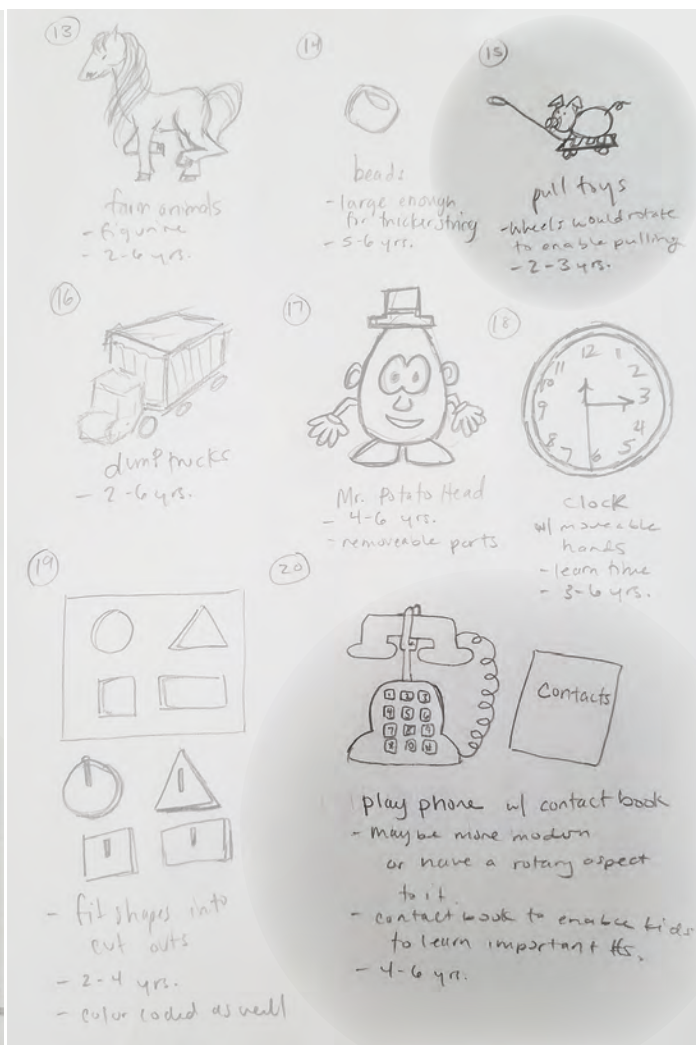 13
farm animals
- figurine
- 2-6 yrs.
14
beads
- large enough
for thicker string
- 5-6 yrs.
15
pull toys
- wheels would rotate
to enable pulling
- 2-3 yrs.
16
dump trucks
- 2-6 yrs.
17
Mr. Potato Head
- 4-6 yrs.
- removeable parts
18
12
1
2
3
4
5
6
7
8
9
10
11
clock
w/ moveable
hands
- learn time
- 3-6 yrs.
19
- fit shapes into
cut outs
- 2-4 yrs.
- color coded as well
20
1 2 3
4 5 6
7 8 9
Contacts
play phone w/ contact book
- maybe more modern
or have a rotary aspect
to it.
- contact book to enable kids
to learn important #s.
- 4-6 yrs.